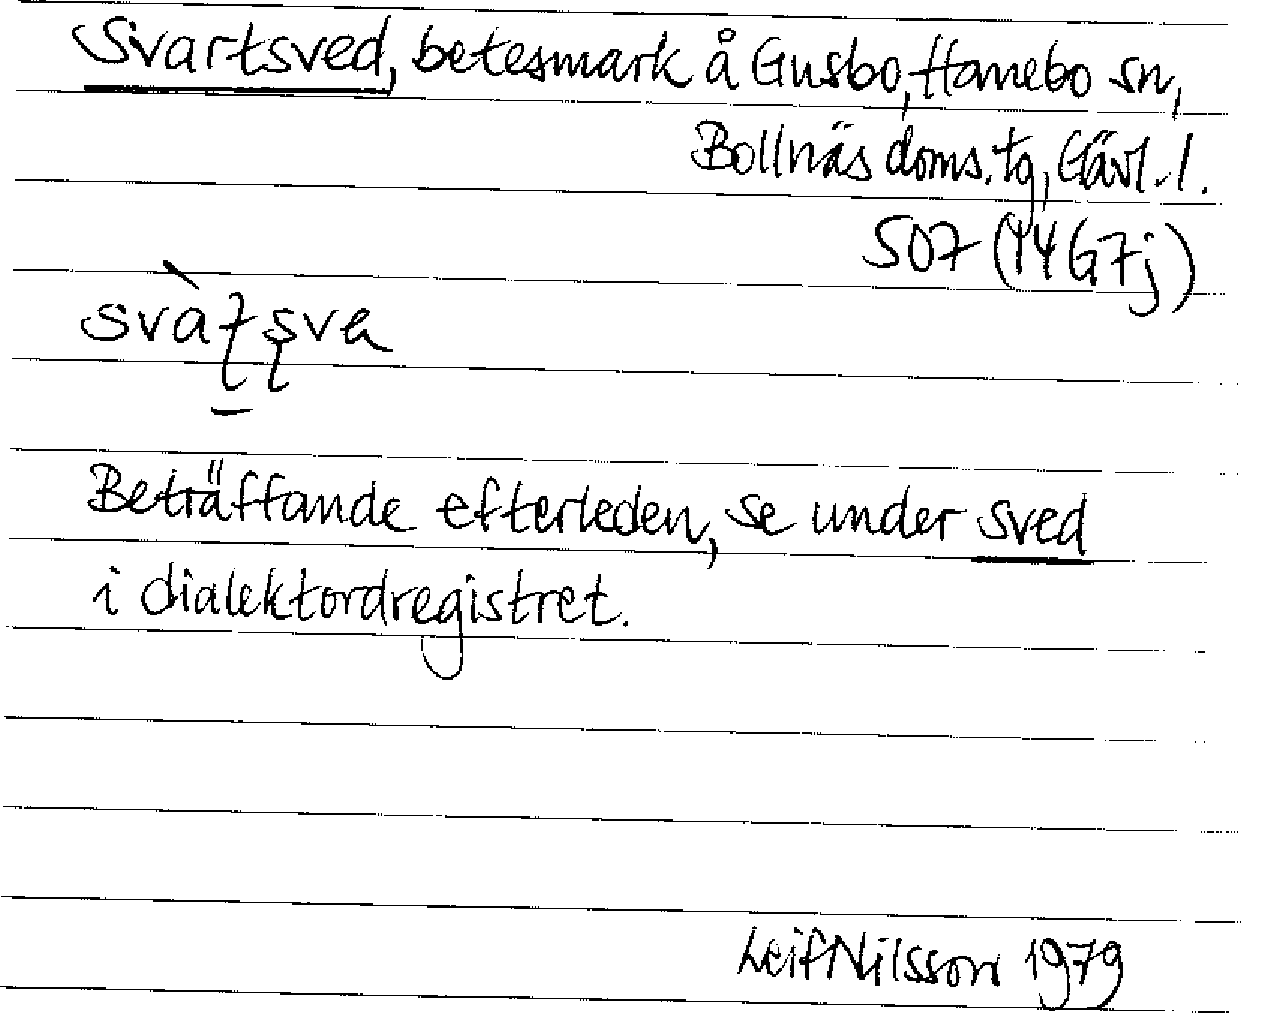 Svartsved, betesmark å Gusbo, Hanebo sn,
Bollnäs doms. tg, Gävl. l.
507 (14G7j)
Beträffande efterleden, se under sved
i dialektordregistret.
Leif Nilsson 1979